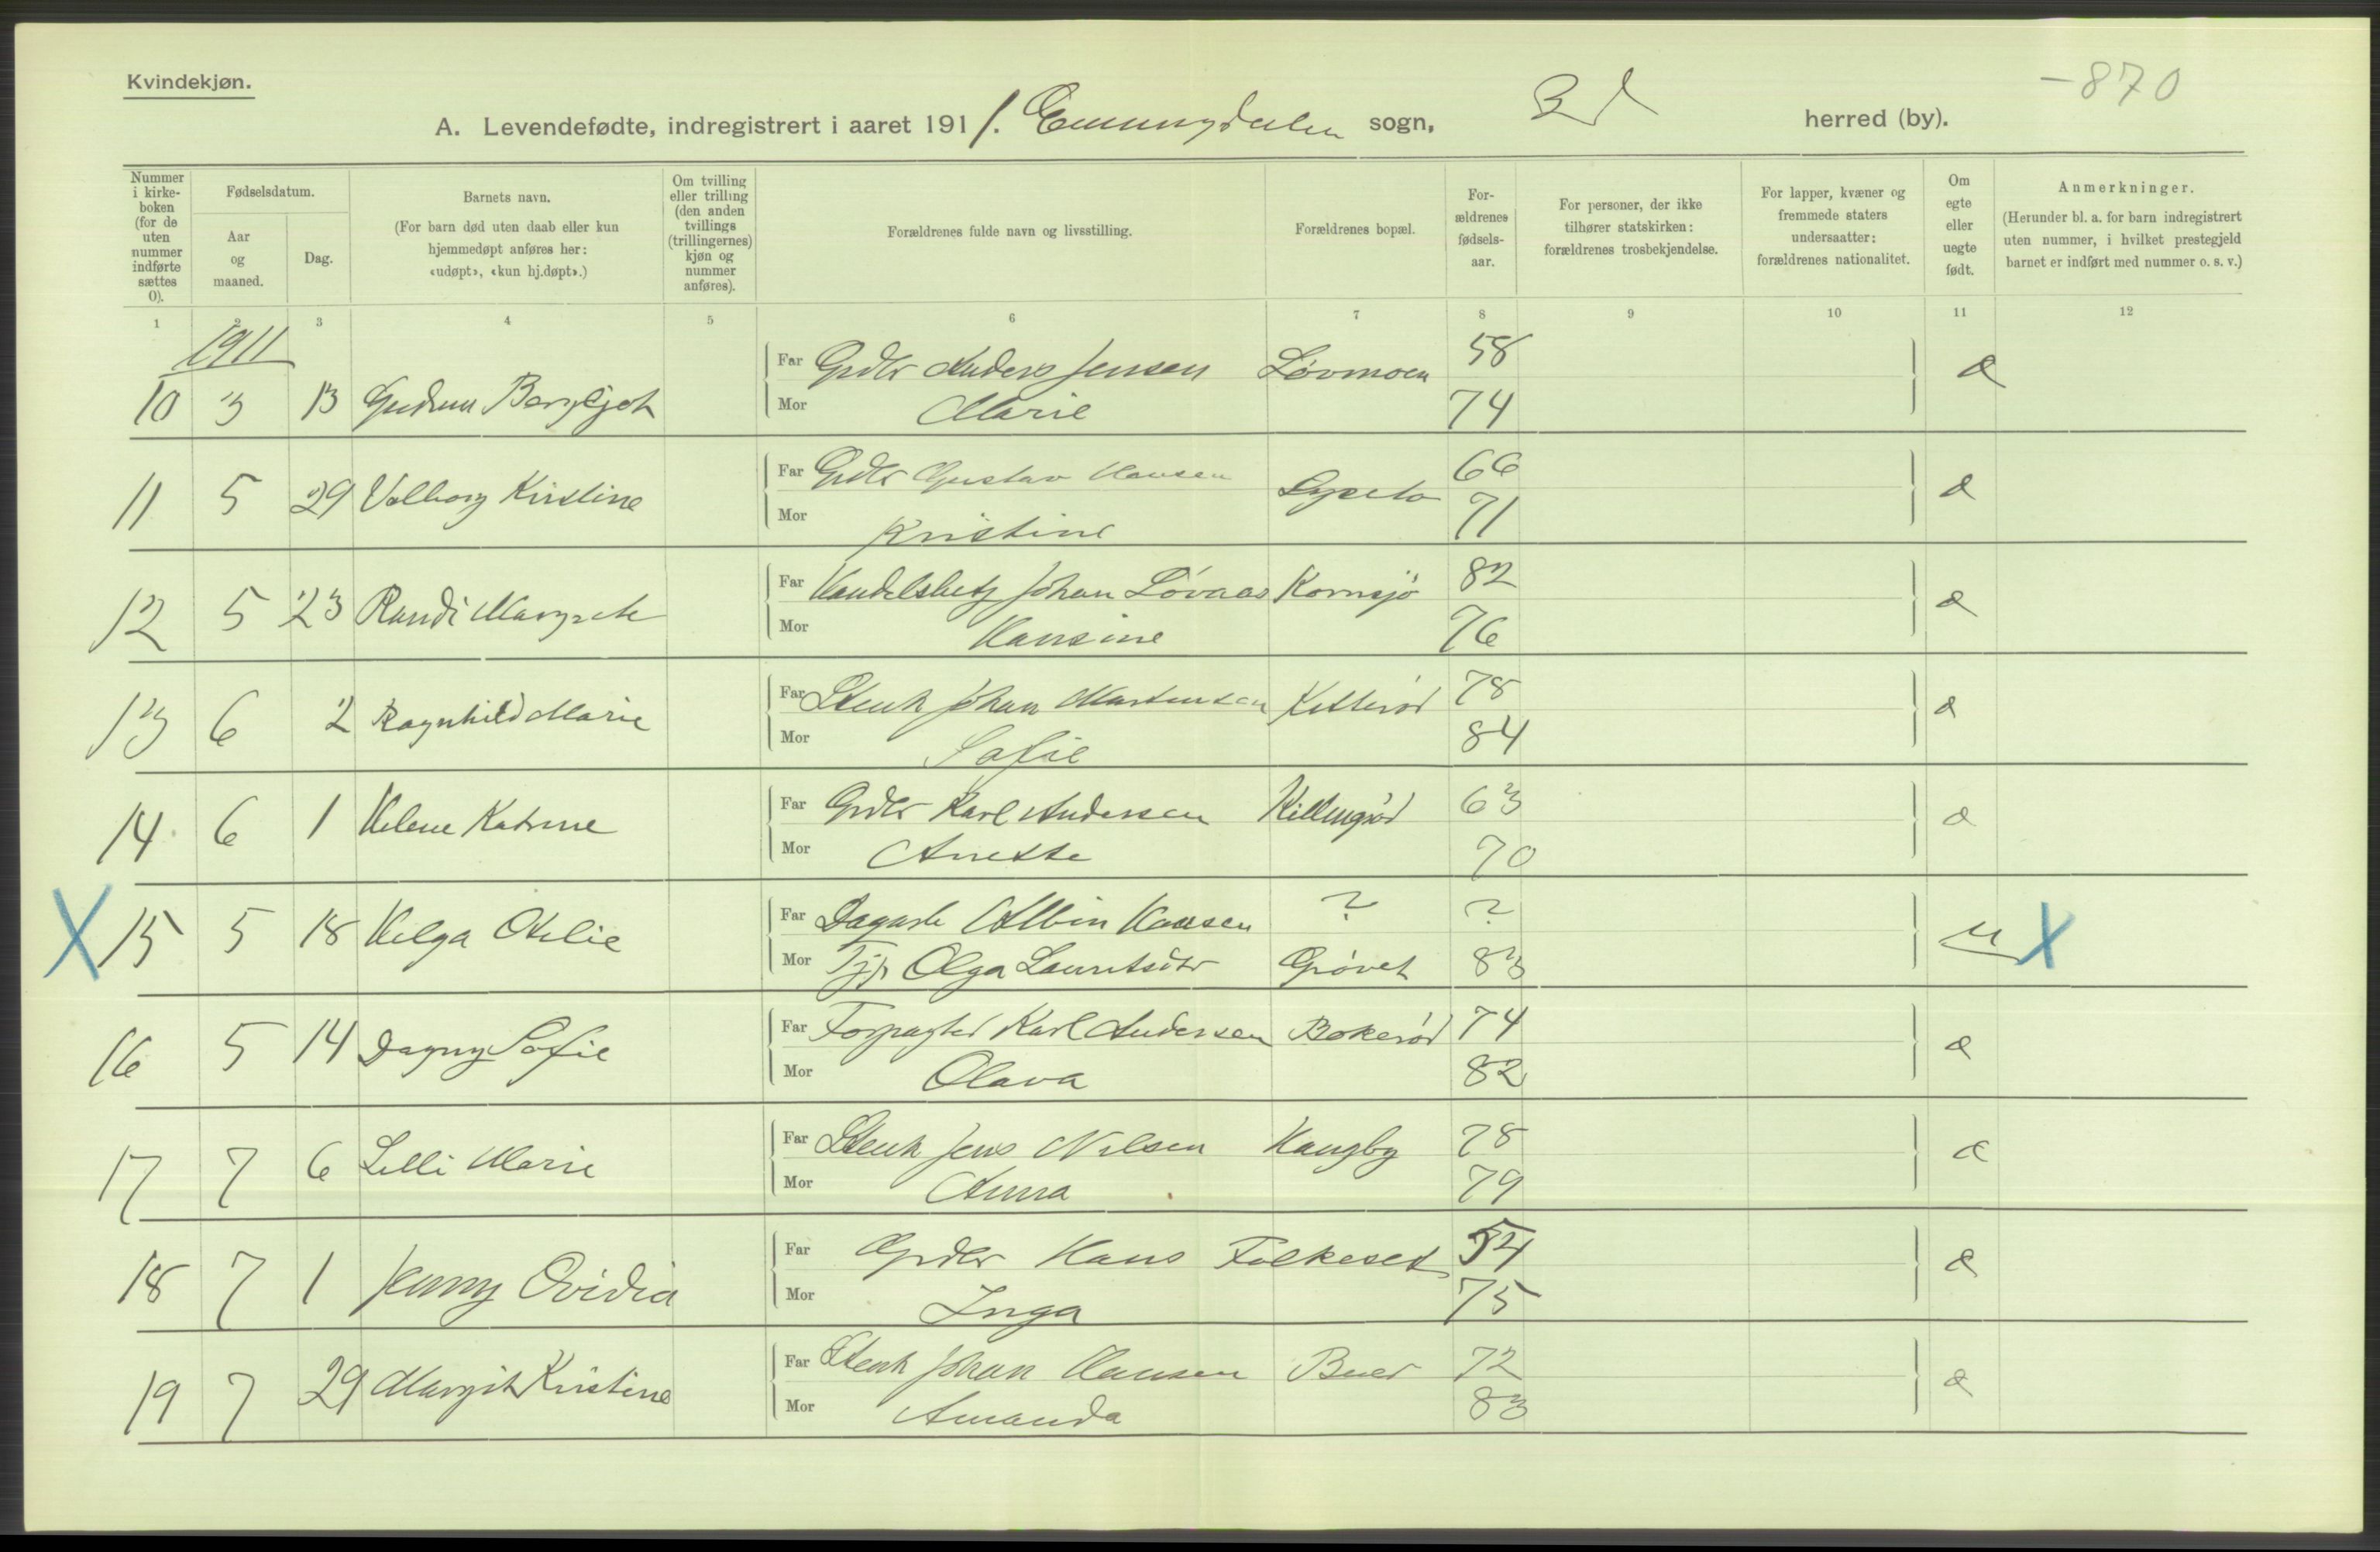 Kvindekjøn.
-870
A. Levendefødte, indregistrert i aaret 1911. Enningdalen sogn, herred (by).
Nummer i kirke-boken (for de uten nummer indførte sættes 0).
Fødselsdatum.
Aar og maaned.
Dag.
Barnets navn.
(For barn død uten daab eller kun hjemmedøpt anføres her: «udøpt», «kun hj.døpt».)
Om tvilling eller trilling (den anden tvillings (trillingernes) kjøn og nummer anføres).
Forældrenes fulde navn og livsstilling.
Forældrenes bopæl.
For-ældrenes fødsels-aar.
For personer, der ikke tilhører statskirken: forældrenes trosbekjendelse.
For lapper, kvæner og fremmede staters undersaatter: forældrenes nationalitet.
Om egte eller uegte født.
Anmerkninger.
(Herunder bl. a. for barn indregistrert uten nummer, i hvilket prestegjeld barnet er indført med nummer o. s. v.)
1 2 3 4 5 6 7 8 9 10 11 12
1911
10 3 13 Gudrun Bergljot Far Grdbr Anders Jensen Løvmoen 58 e
Mor Marie 74
11 5 29 Valborg Kristine Far Grdbr Gustav Hansen 66 e
Mor Kristine 71
12 5 23 Randi Margrete Far Handelsbetj Johan Løvaas Kornsjø 82 e
Mor Hansine 76
13 6 2 Ragnhild Marie Far Stenh Johan Martensen 78 e
Mor Sofie 84
14 6 1 Helene Katrine Far Grdbr Karl Andersen Killingrød 63 e
Mor Anette 70
X 15 5 18 Helga Otelie Far Dagarb Albin Hansen ? ? u X
Mor Tjp Olga Lauritsdtr Grövet 83
16 5 14 Dagny Sofie Far Forpagter Karl Andersen Bokerød 74 e
Mor Olava 82
17 7 6 Lilli Marie Far Stenh Jens Nilsen Haugby 78 e
Mor Anna 79
18 7 1 Jenny Ovidia Far Grdbr Hans Folkeset 54 e
Mor Inga 75
19 7 29 Margit Kristine Far Stenh Johan Hansen Buer 72 e
Mor Amanda 83